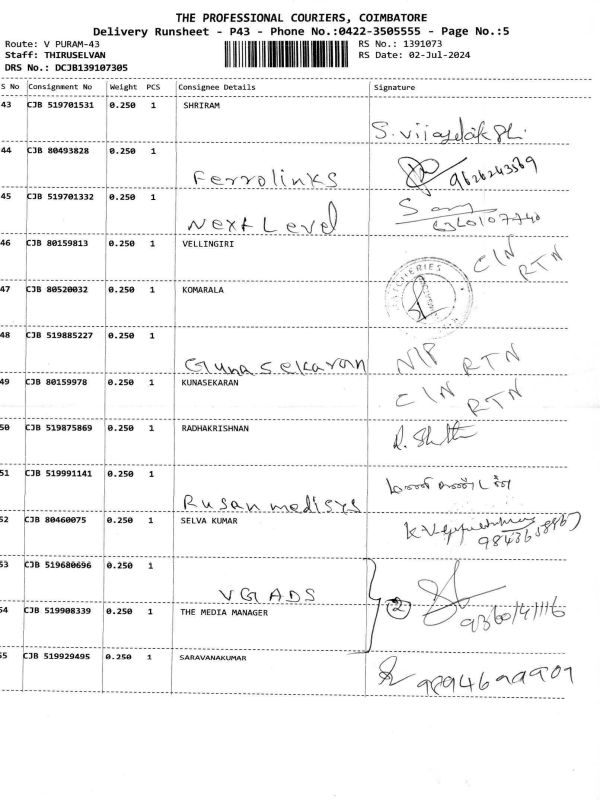 THE PROFESSIONAL COURIERS, COIMBATORE
Delivery Runsheet - P43 - Phone No.:0422-3505555 - Page No.:5
Route: V PURAM-43 RS No.: 1391073
Staff: THIRUSELVAN RS Date: 02-Jul-2024
DRS No.: DCJB139107305
S No Consignment No Weight PCS Consignee Details Signature
43 CJB 519701531 0.250 1 SHRIRAM
44 CJB 80493828 0.250 1
Ferrolinks 9626243569
45 CJB 519701332 0.250 1
Next Level
46 CJB 80159813 0.250 1 VELLINGIRI CIN RTN
47 CJB 80520032 0.250 1 KOMARALA
48 CJB 519885227 0.250 1
Gunasekaran NIP RTN
49 CJB 80159978 0.250 1 KUNASEKARAN CIN RTN
50 CJB 519875869 0.250 1 RADHAKRISHNAN
51 CJB 519991141 0.250 1
Rusan medisys
52 CJB 80460075 0.250 1 SELVA KUMAR
53 CJB 519680696 0.250 1
VG ADS 2
54 CJB 519908339 0.250 1 THE MEDIA MANAGER 9360141116
55 CJB 519929495 0.250 1 SARAVANAKUMAR